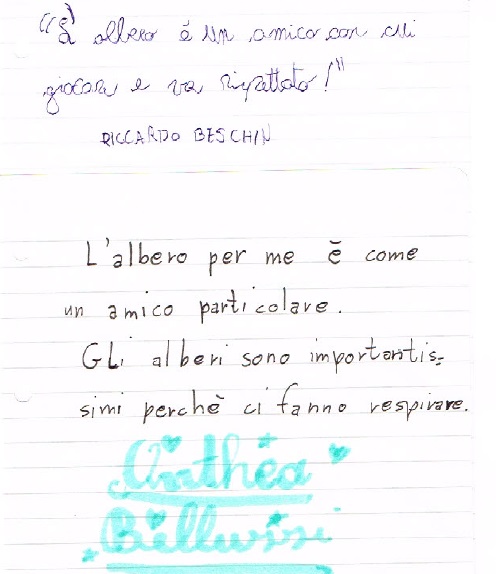 "L' albero è un amico con cui
giocare e va rispettato!"
RICCARDO BESCHIN
L'albero per me è come
un amico particolare.
GLi alberi sono importantis-
simi perchè ci fanno respirare.
Anthéa
Bellwisi